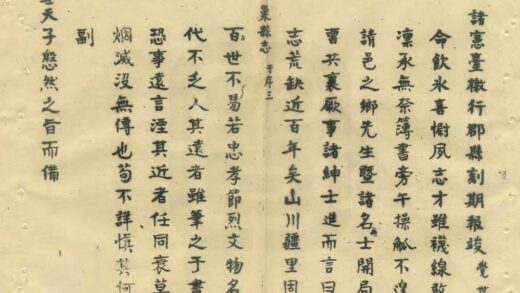 諸憲臺檄行郡縣刻期報竣
命飲氷喜慰夙志才雖襪線敢
凜承無奈簿書旁午操觚不遑
請邑之鄉先生暨諸名士開局
曹共襄厥事諸紳士進而言曰
志荒缺近百年矣山川疆里固
巢縣志 于序 三
百世不易若忠孝節烈文物名
代不乏人其遠者雖筆之于書
恐事遠言湮其近者任同衰草
烟滅沒無傳也苟不詳慎其何
副
天子愍然之旨而備